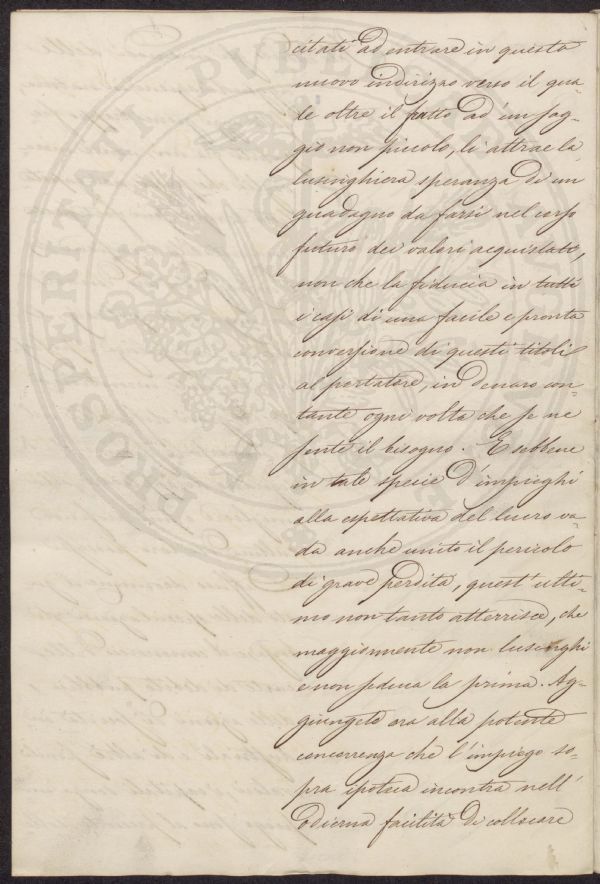 citati ad entrare in questo
nuovo indirizzo verso il qua=
le oltre il fatto ad un sag=
gio non piccolo, li attrae la
lusinghiera speranza di un
guadagno da farsi nel corso
futuro dei valori acquistati,
non che la fiducia in tutti
i casi di una facile e pronta
conversione di questi titoli
al portatore, in denaro con=
tante ogni volta che se ne
sente il bisogno. E sebbene
in tale specie d'impieghi
alla espettativa del lucro va=
da anche unito il pericolo
di grave perdita, quest'ulti=
mo non tanto atterrisce, che
maggiormente non lusinghi
e non seduca la prima. Ag=
giungete ora alla potente
concorrenza che l'impiego so=
pra ipoteca incontra nell'
odierna facilità di collocare
PROSPERITATI PUBLICAE